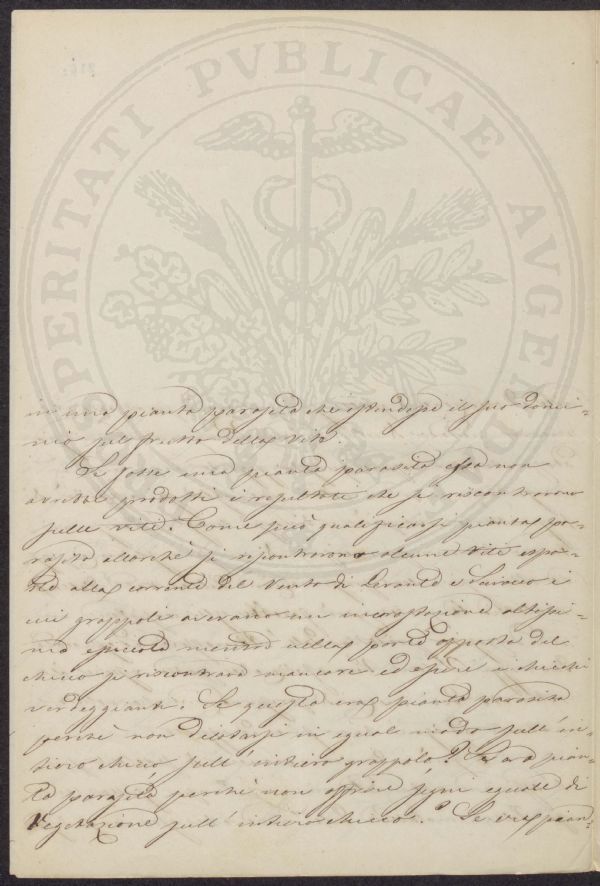 PROSPERITATI PVBLICAE AVGENDAE
in una pianta parasita che estendesse il suo domi=
nio sul frutto della Vite.
Se fosse una pianta parasita essa non
avrebbe prodotti i resultati che si riscontrarono
sulle vite. Come può qualificarsi pianta pa=
rasita allorchè si riscontrarono alcune vite espo=
ste alla corrente del Vento di Levante e Sirocco i
cui grappoli avevano un incrostazione altissi=
ma e piccola mentre nella parte opposta del
chicco si riscontrava mancare ed essere i chicchi
verdeggianti. Se questa era pianta parasita
perchè non dilatarsi in egual modo sull' in=
tiero chicco sull' intiero grappolo? Se era pian=
ta parasita perchè non offrire segni eguali di
Vegetazione sull' intiero chicco? Se era pian=